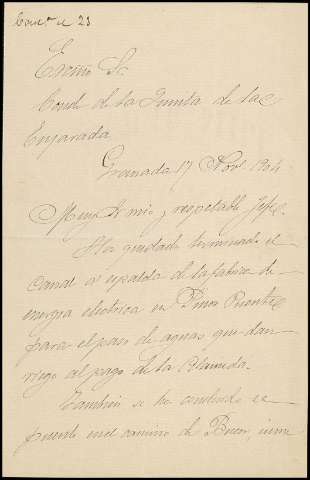 Contº de 23
Excmo Sr.
Conde de la Quinta de la
Enjarada
Granada 17 Nov. 1904
Muy Sr mio y respetable Jefe.
Ha quedado terminado el
canal a espalda de la fabrica de
energia electrica en Pinos Puente
para el paso de aguas que dan
riego al pago de la Alameda.
Tambien se ha concluido el
puente en el camino de Bucor, inme